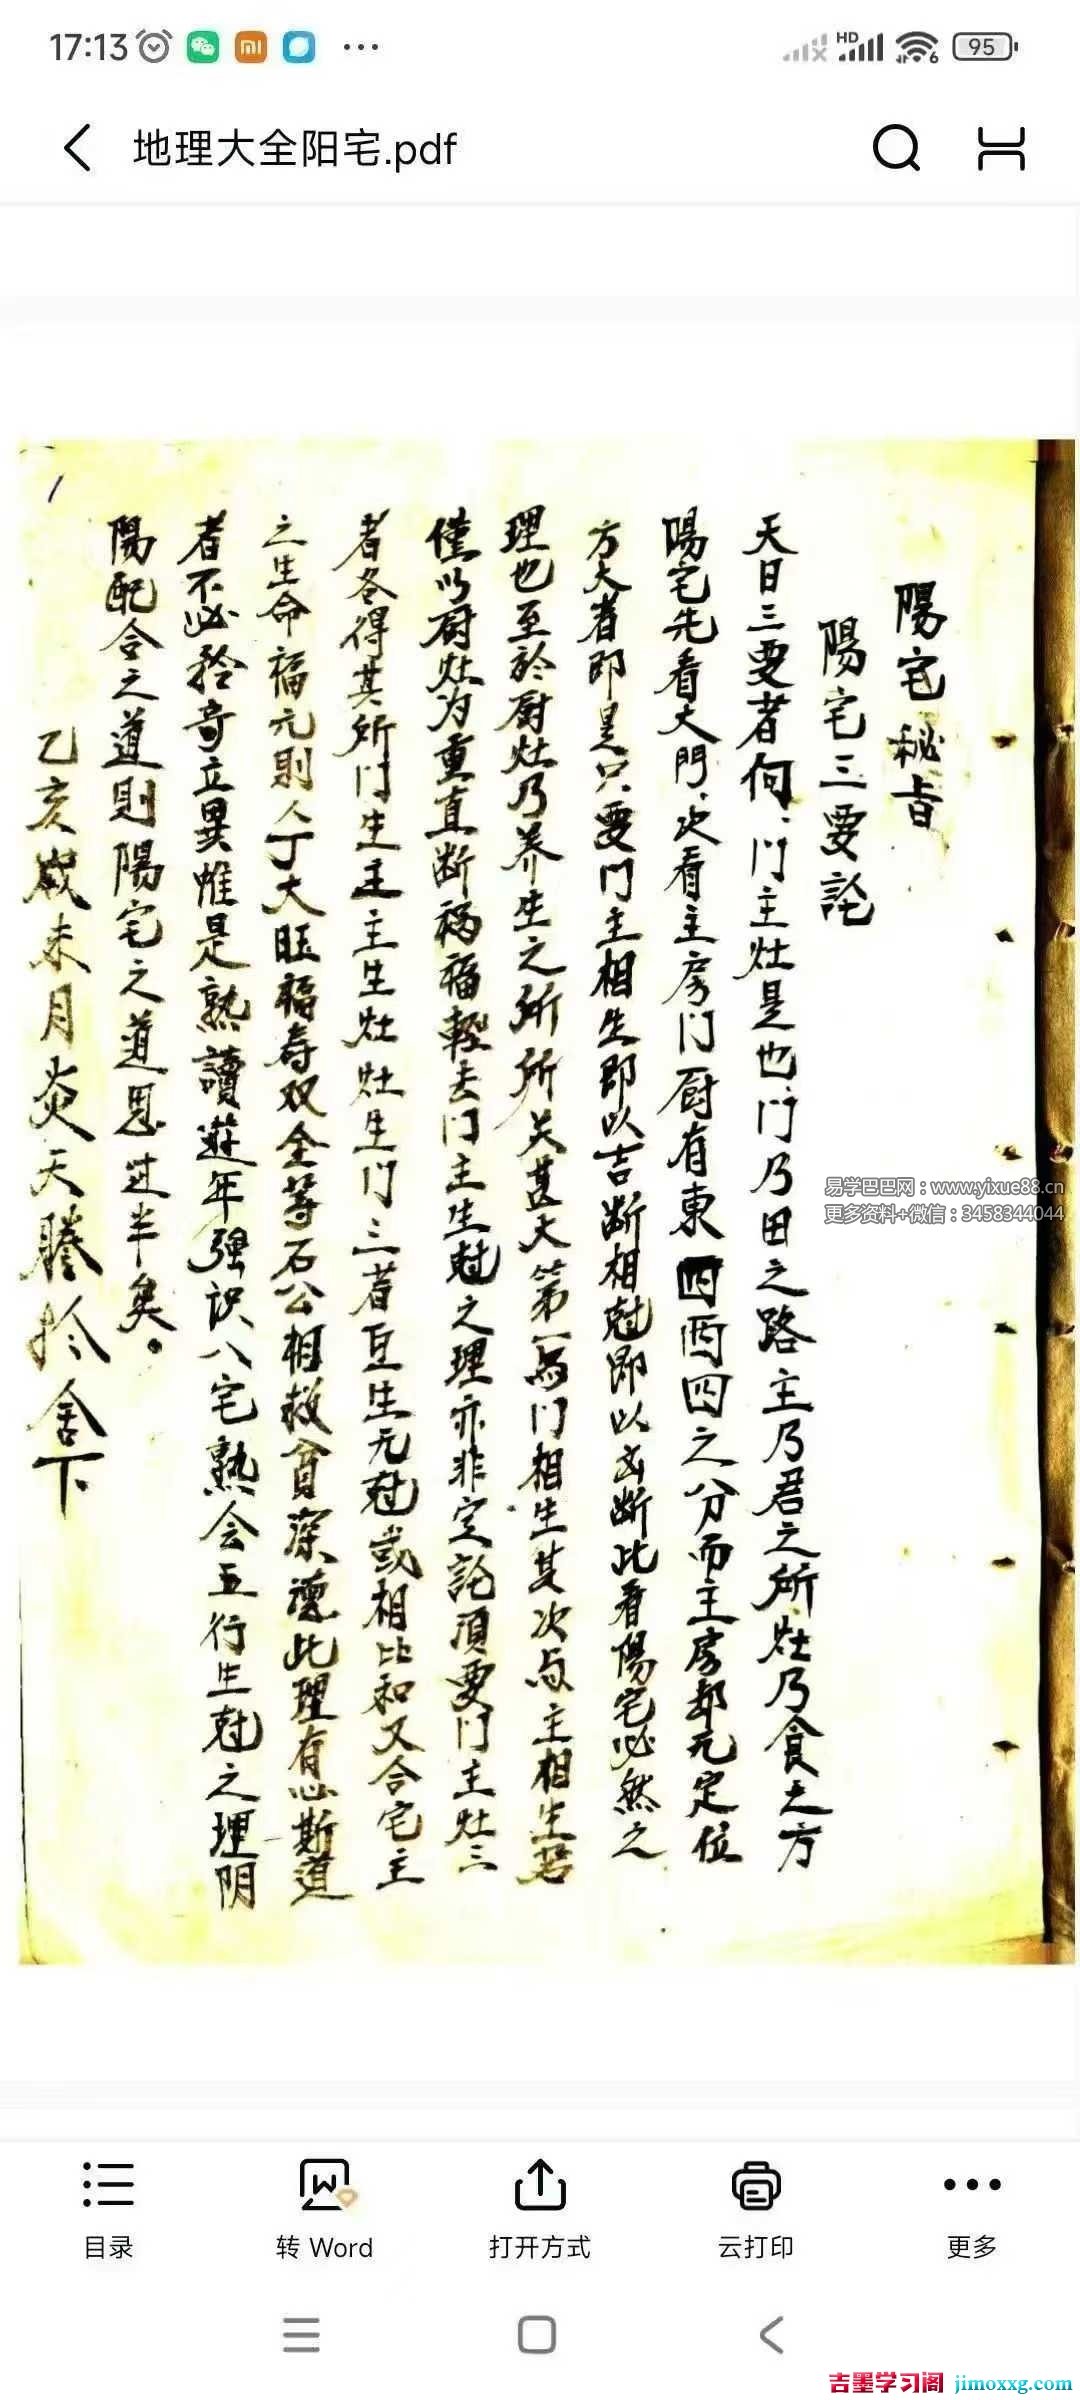 17:13
HD
6
95
地理大全阳宅.pdf
陽宅秘旨
陽宅三要論
天日三要者何、门主灶是也、门乃田之路主乃君之所灶乃食之方
陽宅先看大門、次看主房门厨有東四西四之分而主房却无定位
方大者即是只要门主相生即以吉断相尅即以凶断此看陽宅必然之
理也至於厨灶乃养生之所所关甚大第一与门相生其次与主相生若
僅以厨灶为重直断禍福輕去门主生尅之理亦非定論須要门主灶三
者各得其所门生主主生灶灶生门三者互生无尅或相比和又合宅主
之生命福元則人丁大旺福寿双全等石公相救貧深德此理有心斯道
者不必矜奇立異惟是熟讀遊年强识八宅熟会五行生尅之理阴
陽配合之道則陽宅之道思过半矣。
乙亥歲未月炎天謄於舍下
易学巴巴网：www.yixue88.cn
更多资料+微信：3458344044
目录
转 Word
打开方式
云打印
更多
吉墨学习阁 jimoxxg.com